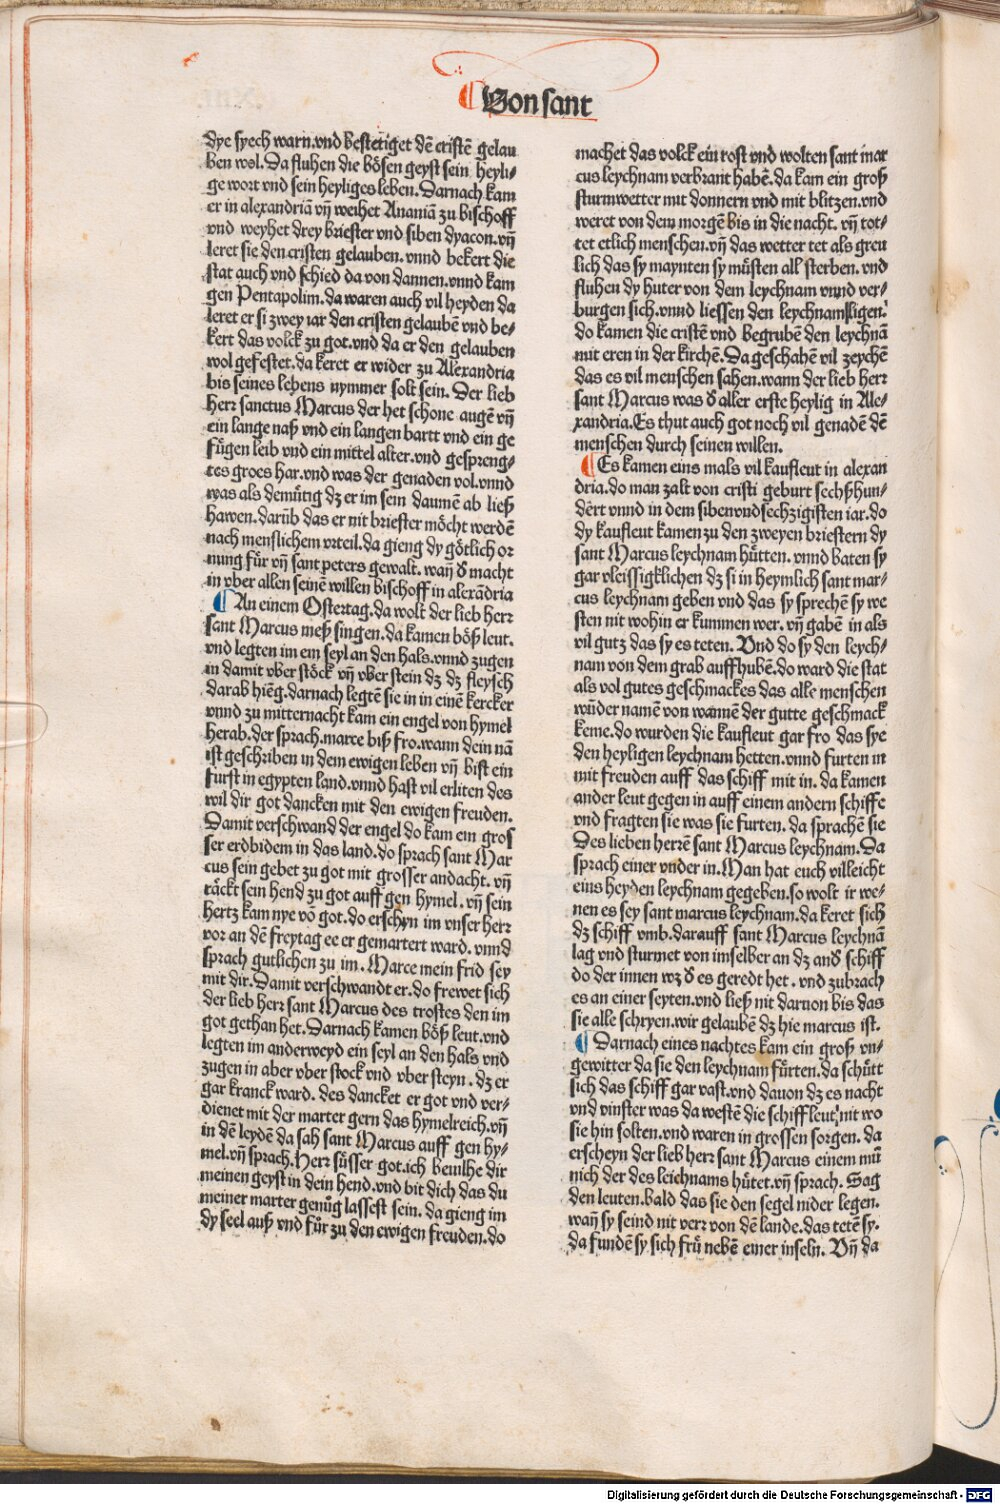 ¶ Von sant
dye syech warn.vnd bestetiget dē cristē gelau
ben wol. Da fluhen die bösen geyst sein heyli⸗
ge wort vnd sein heyliges leben. Darnach kam
er in alexandriā vn̄ weihet Ananiā zu bischoff
vnd weyhet drey briester vnd siben dyacon.vn̄
leret sie den cristen gelauben. vnnd bekert die
stat auch vnd schied da von dannen.vnnd kam
gen Pentapolim.da waren auch vil heyden da
leret er si zwey iar den cristen gelaubē vnd be⸗
kert das volck zu got.vnd da er den gelauben
wol gefestet.da keret er wider zu Alexandria
bis seines lebens nymmer solt sein. Der lieb
herr sanctus Marcus der het schone augē vn̄
ein lange naß vnd ein langen bartt vnd ein ge
fügen leib vnd ein mittel alter.vnd gespreng⸗
tes groes har.vnd was der genaden vol.vnnd
was als demütig dz er im sein daumē ab ließ
hawen.darüb das er nit briester möcht werdē
nach menslichem vrteil.da gieng dy götlich or
nung für vn̄ sant peters gewalt. wan̄ d macht
in vber allen seinē willen bischoff in alexādria
¶ An einem Ostertag.da wolt der lieb herr
sant Marcus meß singen.da kamen böß leut.
vnd legten im ein seyl an den hals.vnnd zugen
in damit vber stöck vn̄ vber stein dz dz fleysch
darab hiēg.darnach legtē sie in in einē kercker
vnnd zu mitternacht kam ein engel von hymel
herab.der sprach.marce biß fro.wann dein nā
ist geschriben in dem ewigen leben vn̄ bist ein
furst in egypten land.vnnd hast vil erliten des
wil dir got dancken mit den ewigen freuden.
Damit verschwand der engel do kam ein gros
ser erdbidem in das land.do sprach sant Mar
cus sein gebet zu got mit grosser andacht. vn̄
räckt sein hend zu got auff gen hymel. vn̄ sein
hertz kam nye vō got.do erschyn im vnser herr
vor an dē freytag ee er gemartert ward. vnnd
sprach gutlichen zu im. Marce mein frid sey
mit dir. Damit verschwandt er.do frewet sich
der lieb herr sant Marcus des trostes den im
got gethan het. Darnach kamen böß leut.vnd
legten im anderweyd ein seyl an den hals vnd
zugen in aber vber stock vnd vber steyn. dz er
gar kranck ward. des dancket er got vnd ver⸗
dienet mit der marter gern das hymelreich.vn̄
in dē leydē da sah sant Marcus auff gen hy⸗
mel.vn̄ sprach. Herr süsser got.ich beuilhe dir
meinen geyst in dein hend.vnd bit dich das du
meiner marter genüg lassest sein. da gieng im
dy seel auß vnd für zu den ewigen freuden.do
machet das volck ein rost vnd wolten sant mar
cus leychnam verbrant habē. da kam ein groß
sturmwetter mit donnern vnd mit blitzen.vnd
weret von dem morgē bis in die nacht. vn̄ tot⸗
tet etlich menschen.vn̄ das wetter tet als greu
lich das sy maynten sy müsten all sterben. vnd
fluhen dy huter von dem leychnam vnnd ver⸗
burgen sich.vnnd liessen den leychnam ligen.
do kamen die cristē vnd begrubē den leychnā
mit eren in der kirchē. Da geschahē vil zeychē
das es vil menschen sahen.wann der lieb herr
sant Marcus was d aller erste heylig in Ale⸗
xandria. Es thut auch got noch vil genadē dē
menschen durch seinen willen.
¶ Es kamen eins mals vil kaufleut in alexan
dria.do man zalt von cristi geburt sechßhun⸗
dert vnnd in dem sibenvndsechzigisten iar.do
dy kaufleut kamen zu den zweyen briestern dy
sant Marcus leychnam hütten. vnnd baten sy
gar vleissigklichen dz si in heymlich sant mar⸗
cus leychnam geben vnd das sy sprechē sy we
sten nit wohin er kummen wer. vn̄ gabē in als
vil gutz das sy es teten. Vnd do sy den leych⸗
nam von dem grab auffhubē.do ward die stat
als vol gutes geschmackes das alle menschen
wūder namē von wannē der gutte geschmack
keme.do wurden die kaufleut gar fro das sye
den heyligen leychnam hetten.vnnd furten in
mit freuden auff das schiff mit in. da kamen
ander leut gegen in auff einem andern schiffe
vnd fragten sie was sie furten. da sprachē sie
Des lieben herrē sant Marcus leychnam. Da
sprach einer vnder in. Man hat euch villeicht
eins heyden leychnam gegeben.so wolt ir we⸗
nen es sey sant marcus leychnam.da keret sich
dz schiff vmb. darauff sant Marcus leychnā
lag vnd sturmet von imselber an dz and schiff
do der innen wz d es geredt het. vnd zubrach
es an einer seyten.vnd ließ nit daruon bis das
sie alle schryen.wir gelaubē dz hie marcus ist.
¶ Darnach eines nachtes kam ein groß vn⸗
gewitter da sie den leychnam fürten.da schütt
sich das schiff gar vast.vnd dauon dz es nacht
vnd vinster was da westē die schiffleut nit wo
sie hin solten.vnd waren in grossen sorgen. da
erscheyn der lieb herr sant Marcus einem mü
nich der des leichnams hütet.vn̄ sprach. Sag
den leuten.bald das sie den segel nider legen.
wan̄ sy seind nit verr von dē lande.das tetē sy.
da fundē sy sich frü nebē einer inseln. Vn̄ da
Digitalisierung gefördert durch die Deutsche Forschungsgemeinschaft - DFG